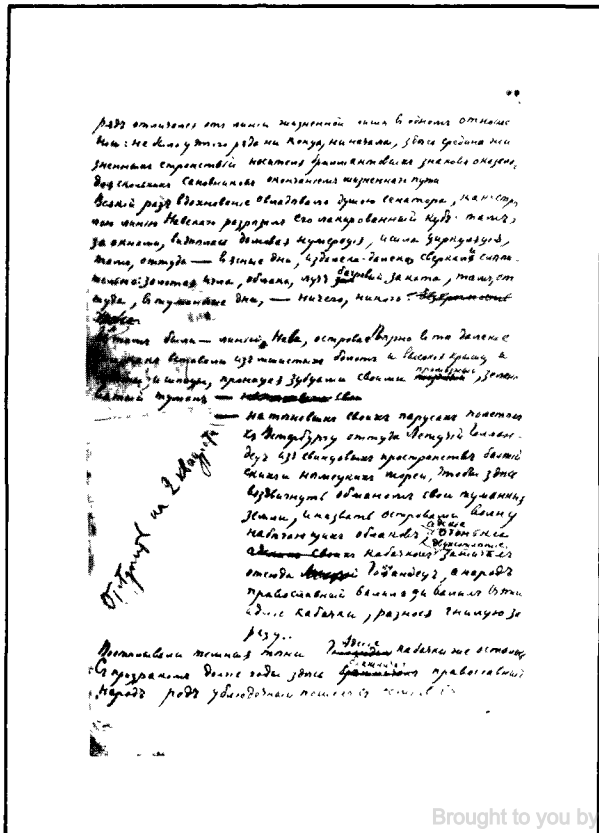 рядъ отличался отъ линiи жизненной лишь въ одномъ отноше
нiи: не было у этого ряда ни конца, ни начала, здѣсь средина жи
зненныхъ странствiй носителя бриллiантовыхъ знаковъ оказыва
сановниковъ окончанiемъ жизненнаго пути
Всякiй разъ вдохновенiе овладѣвало душою сенатора, какъ стр
лою линiю Невскаго разрѣзалъ его лакированный кубъ: тамъ,
за окнами, видѣлась домовая нумерацiя, и шла циркуляцiя,
тамъ, оттуда — въ ясные дни, издалека-далека, сверкали слѣпи
тельно: золотая игла, облака, лучъ багровый заката, тамъ, от
туда, въ туманные дни, — ничего, никого.
Тамъ были — линiи, Нева, острова. Вѣрно въ то далекiе
вставали изъ мшистыхъ болотъ и высокiя крыши, и
и шпицы, проницая зубцами своими зелен
ватый туманъ —
— на тѣневыхъ своихъ парусахъ полетѣлъ
къ Петербургу оттуда Летучiй Голлан-
децъ изъ свинцовыхъ пространствъ балтiй
скихъ и нѣмецкихъ морей, чтобы здѣсь
воздвигнуть обманомъ свои туманныя
земли, и назвать островами волну
набѣгающихъ облаковъ; адскiе
огоньки
двухсотлѣтiе
кабачковъ зажигалъ
отсюда Голландецъ, а народъ
православный валилъ да валилъ въ эти
адскiе кабачки, разнося гнилую за
разу..
Отступить на 2 квадрата
Поотплывали темныя тѣни здѣсь Адскiе кабачки же остались
Съ призракомъ долгiе годы здѣсь православный
народъ родъ ублюдочный пошелъ съ
Brought to you by